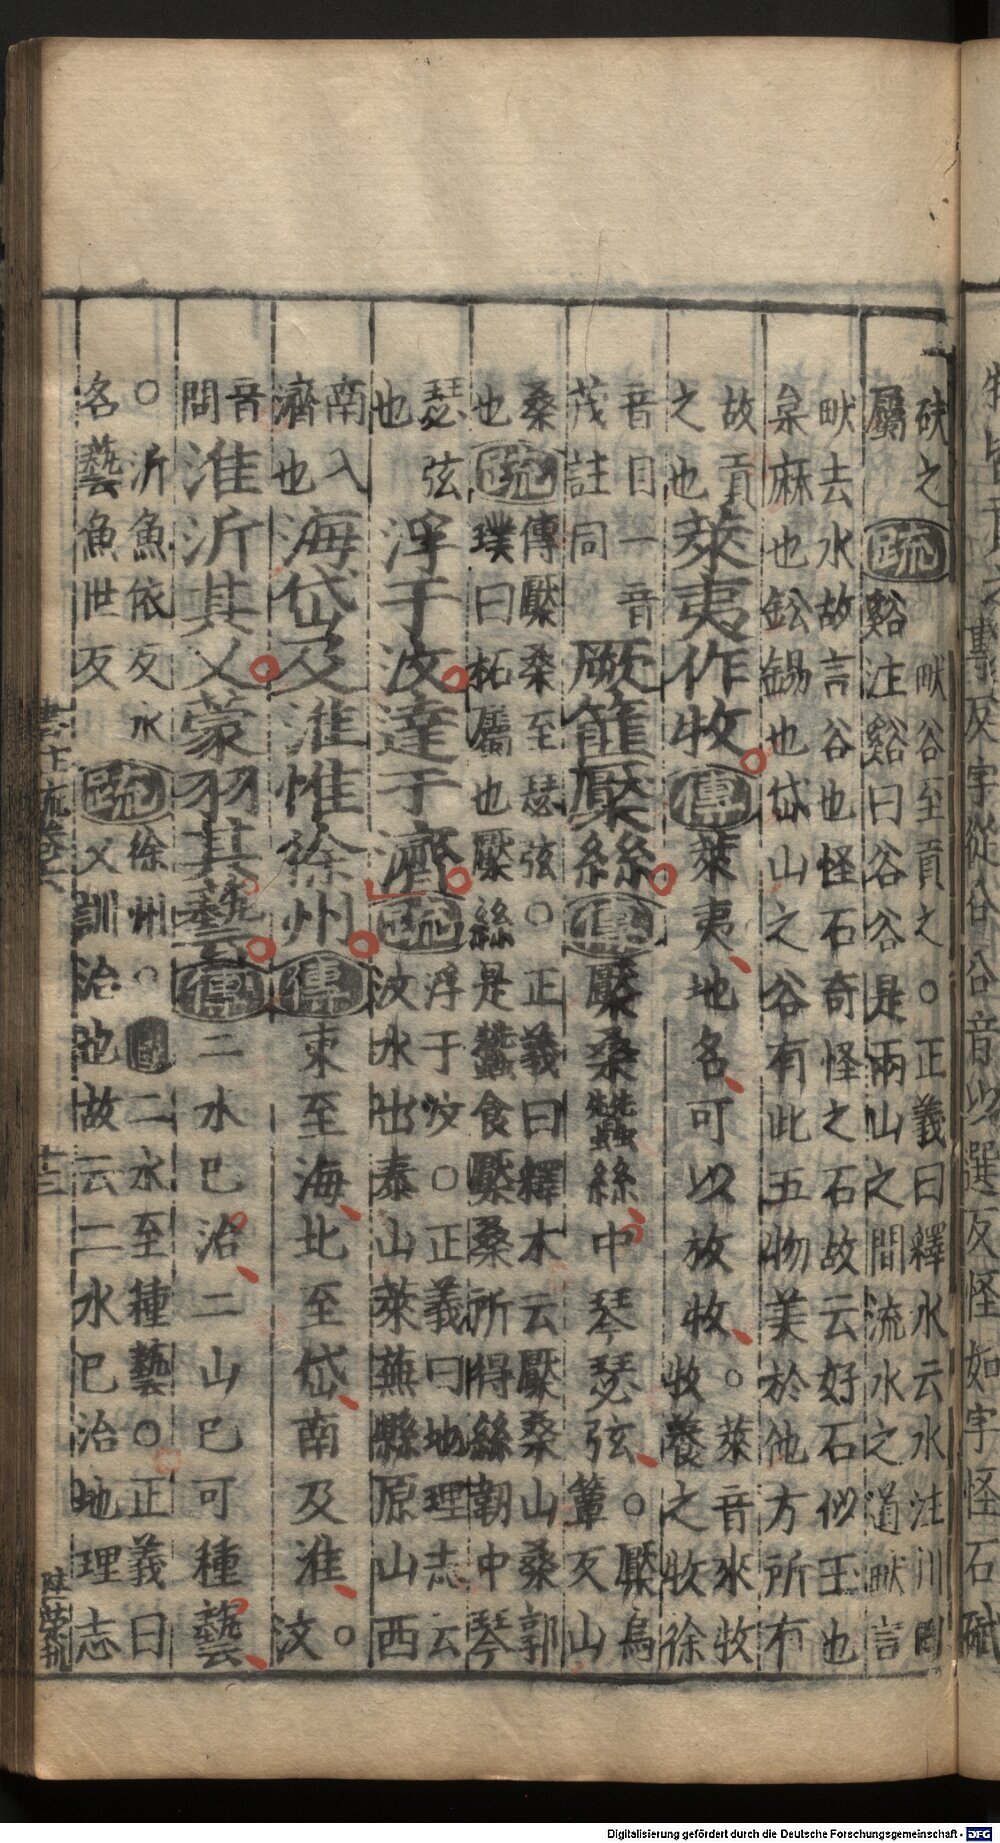 砆之
屬
疏
畎谷至貢之○正義曰釋水云水注川曰
谿注谿曰谷谷是兩山之間流水之道畎言
畎去水故言谷也怪石奇怪之石故云好石似玉也
枲麻也鈆錫也岱山之谷有此五物美於他方所有
故貢
之也
萊夷作牧
傳
萊夷地名可以放牧○萊音來牧
牧養之牧徐
音目一音
茂註同
厥篚檿絲
傳
檿桑蠶絲中琴瑟弦○檿烏
簟反山
桑
也
疏
傳檿桑至瑟弦○正義曰釋木云檿桑山桑郭
璞曰柘屬也檿絲是蠶食檿桑所得絲韌中琴
瑟弦
也
浮于汶達于濟
疏
浮于汶○正義曰地理志云
汶水出泰山萊蕪縣原山西
南入
濟也
海岱及淮惟徐州
傳
東至海北至岱南及淮○
汶
音
問
淮沂其乂蒙羽其藝
傳
二水已治二山已可種藝
○沂魚依反水
名藝魚世反
疏
徐州○傳二水至種藝○正義曰
乂訓治也故云二水已治地理志
書十疏卷六
十三
陸榮刊
Digitalisierung gefördert durch die Deutsche Forschungsgemeinschaft - DFG